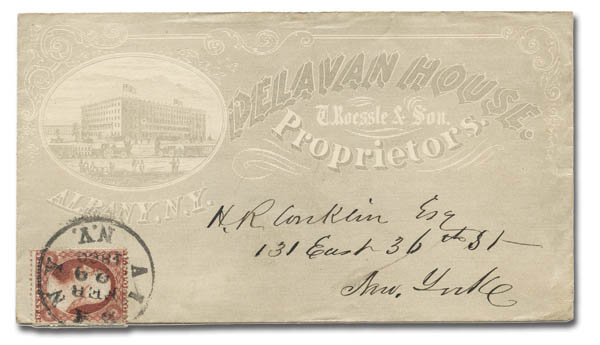 DELAVAN HOUSE.
T. Roessle & Son.
Proprietors.
ALBANY, N.Y.
H. R. Conklin Esq
131 East 36th St
New. York
N.Y.
FEB